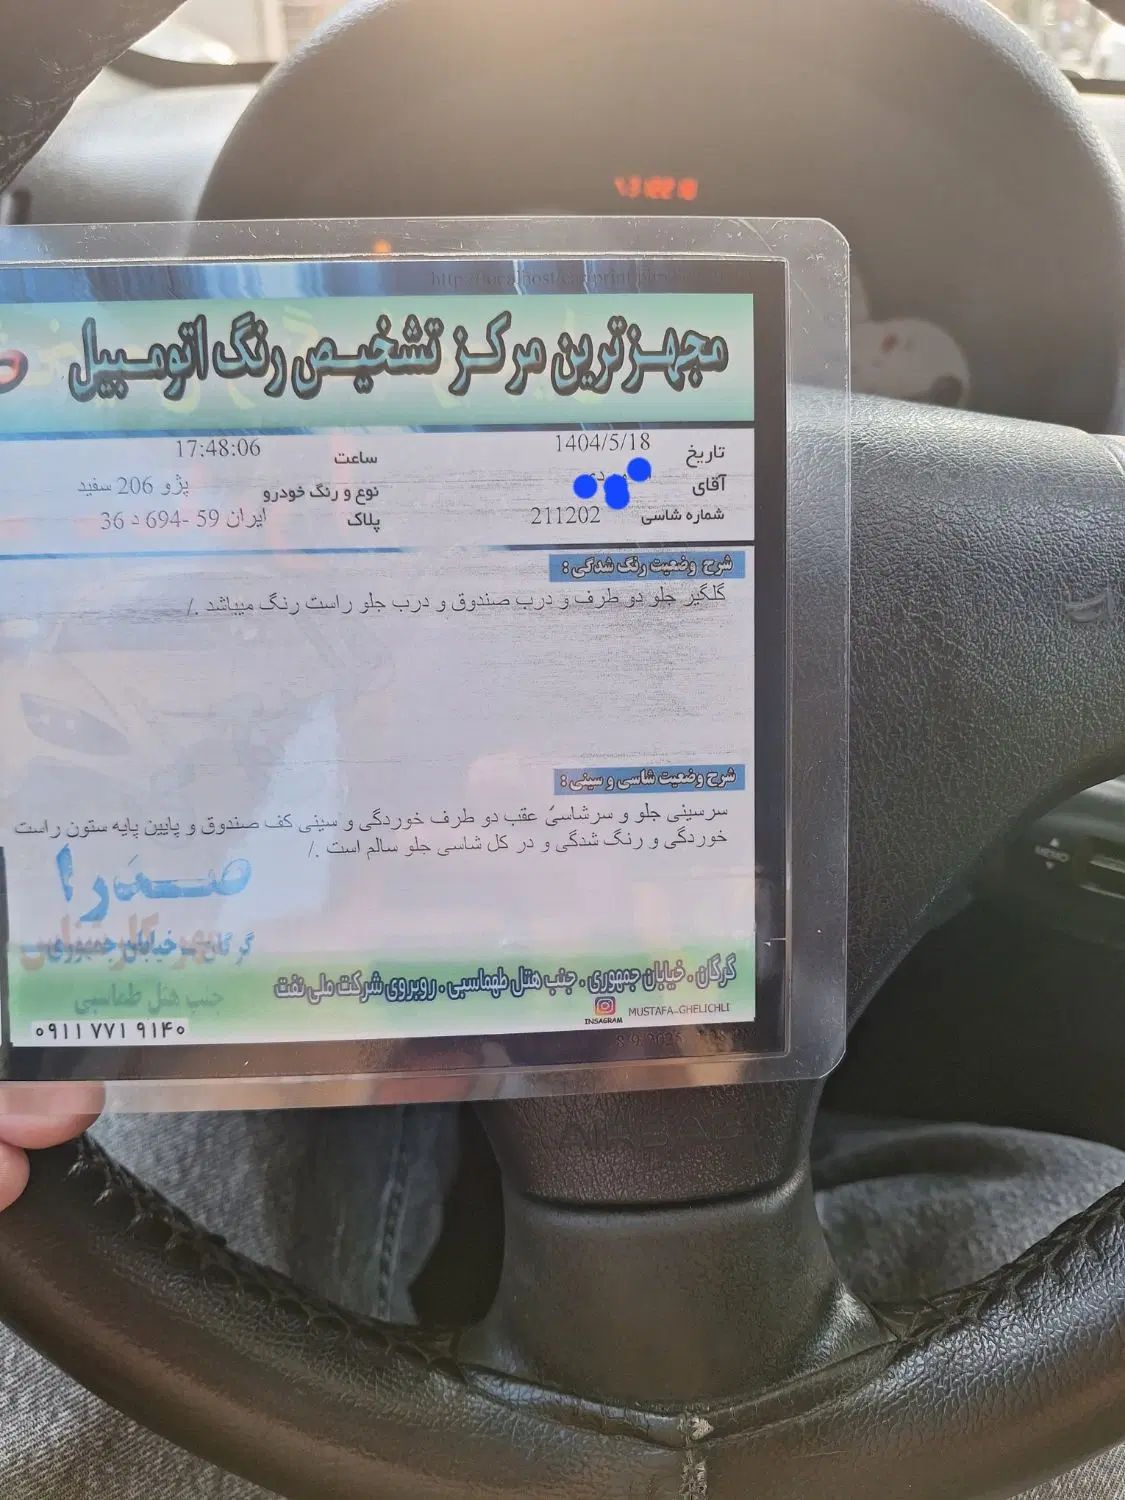 مجهزترین مرکز تشخیص رنگ اتومبیل
تاریخ 1404/5/18 ساعت 17:48:06
آقای نوع و رنگ خودرو پژو 206 سفید
شماره شاسی 211202 پلاک ایران 59 -694 د 36
شرح وضعیت رنگ شدگی :
گلگیر جلو دو طرف و درب صندوق و درب جلو راست رنگ میباشد ./
شرح وضعیت شاسی و سینی :
سرسینی جلو و سرشاسی عقب دو طرف خوردگی و سینی کف صندوق و پایین پایه ستون راست
خوردگی و رنگ شدگی و در کل شاسی جلو سالم است ./
صدرا
گرگان - خیابان جمهوری
جنب هتل طهماسبی
گرگان . خیابان جمهوری . جنب هتل طهماسبی . روبروی شرکت ملی نفت
INSAGRAM MUSTAFA-GHELICHLI
۰۹۱۱ ۷۷۱ ۹۱۴۰
AIRBAG